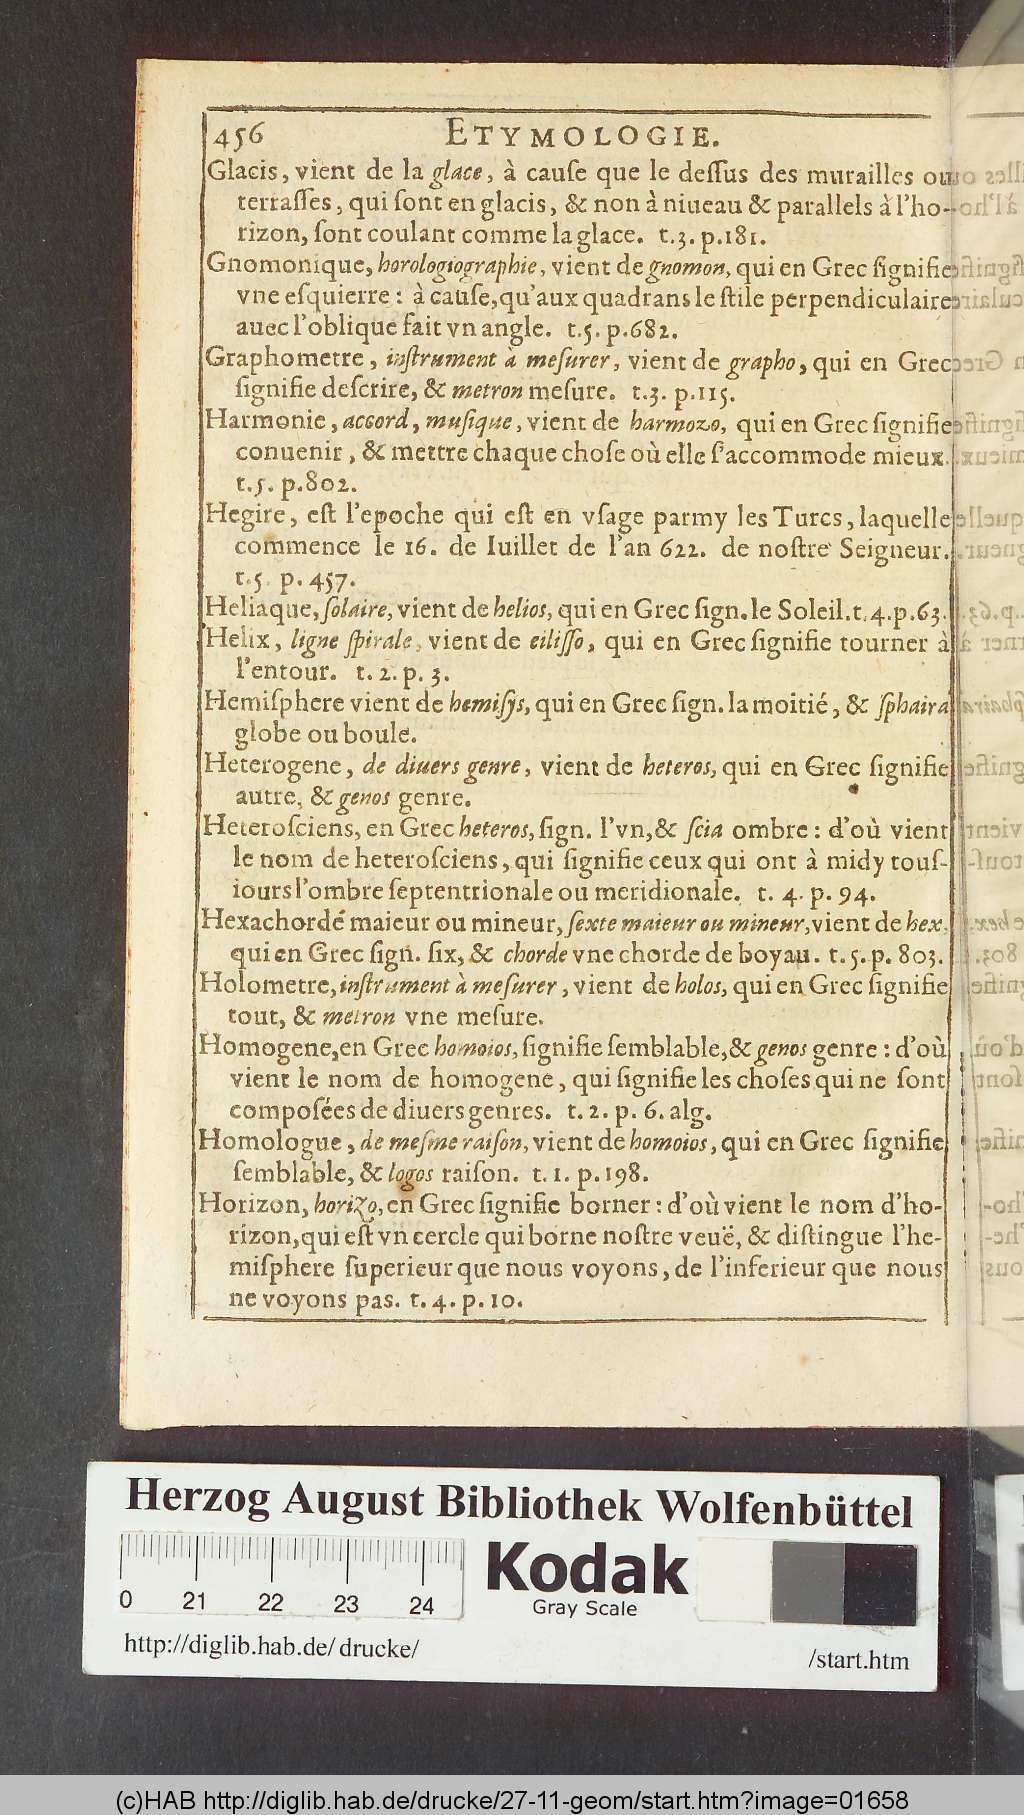 456 ETYMOLOGIE.
Glacis, vient de la glace, à cauſe que le deſſus des murailles ou
terraſſes, qui ſont en glacis, & non à niueau & parallels à l'ho-
rizon, ſont coulant comme la glace. t.3. p.181.
Gnomonique, horologiographie, vient de gnomon, qui en Grec ſignifie
vne eſquierre : à cauſe, qu'aux quadrans le ſtile perpendiculaire
auec l'oblique fait vn angle. t.5. p.682.
Graphometre, inſtrument à meſurer, vient de grapho, qui en Grec
ſignifie deſcrire, & metron meſure. t.3. p.115.
Harmonie, accord, muſique, vient de harmozo, qui en Grec ſignifie
conuenir, & mettre chaque choſe où elle ſ'accommode mieux.
t.5. p.802.
Hegire, eſt l'epoche qui eſt en vſage parmy les Turcs, laquelle
commence le 16. de Iuillet de l'an 622. de noſtre Seigneur.
t.5. p. 457.
Heliaque, ſolaire, vient de helios, qui en Grec ſign. le Soleil. t.4. p.63.
Helix, ligne ſpirale, vient de eiliſſo, qui en Grec ſignifie tourner à
l'entour. t. 2. p. 3.
Hemiſphere vient de hemiſys, qui en Grec ſign. la moitié, & ſphaira
globe ou boule.
Heterogene, de diuers genre, vient de heteros, qui en Grec ſignifie
autre, & genos genre.
Heteroſciens, en Grec heteros, ſign. l'vn, & ſcia ombre : d'où vient
le nom de heteroſciens, qui ſignifie ceux qui ont à midy touſ-
iours l'ombre ſeptentrionale ou meridionale. t. 4. p. 94.
Hexachordé maieur ou mineur, ſexte maieur ou mineur, vient de hex,
qui en Grec ſign. ſix, & chorde vne chorde de boyau. t.5. p. 803.
Holometre, inſtrument à meſurer, vient de holos, qui en Grec ſignifie
tout, & metron vne meſure.
Homogene, en Grec homoios, ſignifie ſemblable, & genos genre : d'où
vient le nom de homogene, qui ſignifie les choſes qui ne ſont
compoſées de diuers genres. t. 2. p. 6. alg.
Homologue, de meſme raiſon, vient de homoios, qui en Grec ſignifie
ſemblable, & logos raiſon. t. 1. p.198.
Horizon, horizo, en Grec ſignifie borner : d'où vient le nom d'ho-
rizon, qui eſt vn cercle qui borne noſtre veuë, & diſtingue l'he-
miſphere ſuperieur que nous voyons, de l'inferieur que nous
ne voyons pas. t. 4. p. 10.
Herzog August Bibliothek Wolfenbüttel
0 21 22 23 24
Kodak
Gray Scale
http://diglib.hab.de/drucke/ /start.htm
(c)HAB http://diglib.hab.de/drucke/27-11-geom/start.htm?image=01658